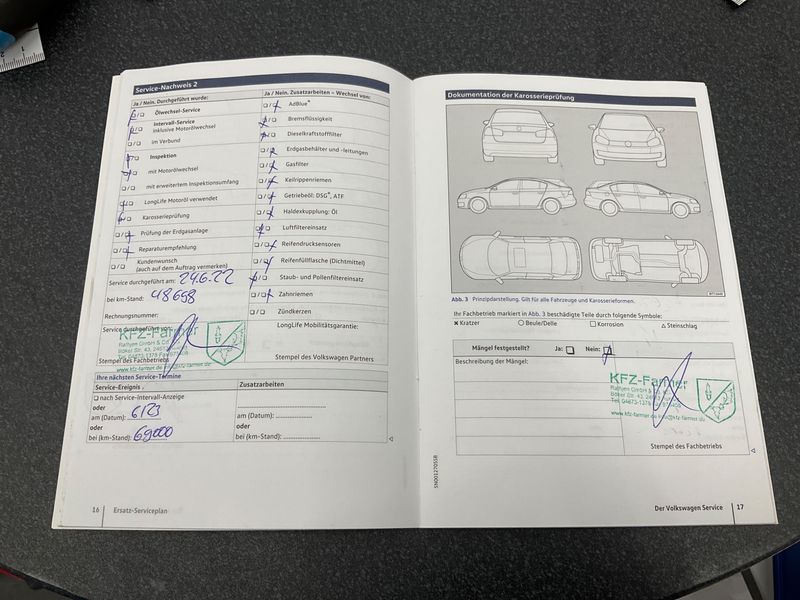 Service-Nachweis 2
Ja / Nein, Durchgeführt wurde:
Ölwechsel-Service
Intervall-Service
inklusive Motorölwechsel
im Verbund
Inspektion
mit Motorölwechsel
mit erweitertem Inspektionsumfang
LongLife Motoröl verwendet
Karosserieprüfung
Prüfung der Erdgasanlage
Reparaturempfehlung
Kundenwunsch
(auch auf dem Auftrag vermerken)
Service durchgeführt am: 24.6.22
bei km-Stand: 48658
Rechnungsnummer:
Service durchgeführt von:
KFZ-Farmer
Stempel des Fachbetriebs
www.kfz-farmer.de
Ja / Nein, Zusatzarbeiten – Wechsel von:
AdBlue®
Bremsflüssigkeit
Dieselkraftstofffilter
Erdgasbehälter und -leitungen
Gasfilter
Keilrippenriemen
Getriebeöl: DSG®, ATF
Haldexkupplung: Öl
Luftfiltereinsatz
Reifendrucksensoren
Reifenfüllflasche (Dichtmittel)
Staub- und Pollenfiltereinsatz
Zahnriemen
Zündkerzen
LongLife Mobilitätsgarantie:
Stempel des Volkswagen Partners
Ihre nächsten Service-Termine
Service-Ereignis
nach Service-Intervall-Anzeige
oder
am (Datum): 6/23
oder
bei (km-Stand): 69000
Zusatzarbeiten
am (Datum):
oder
bei (km-Stand):
16 Ersatz-Serviceplan
Dokumentation der Karosserieprüfung
Abb. 3 Prinzipdarstellung. Gilt für alle Fahrzeuge und Karosserieformen.
Ihr Fachbetrieb markiert in Abb. 3 beschädigte Teile durch folgende Symbole:
× Kratzer ○ Beule/Delle □ Korrosion △ Steinschlag
Mängel festgestellt? Ja: Nein:
Beschreibung der Mängel:
KFZ-Farmer
www.kfz-farmer.de
Stempel des Fachbetriebs
Der Volkswagen Service 17